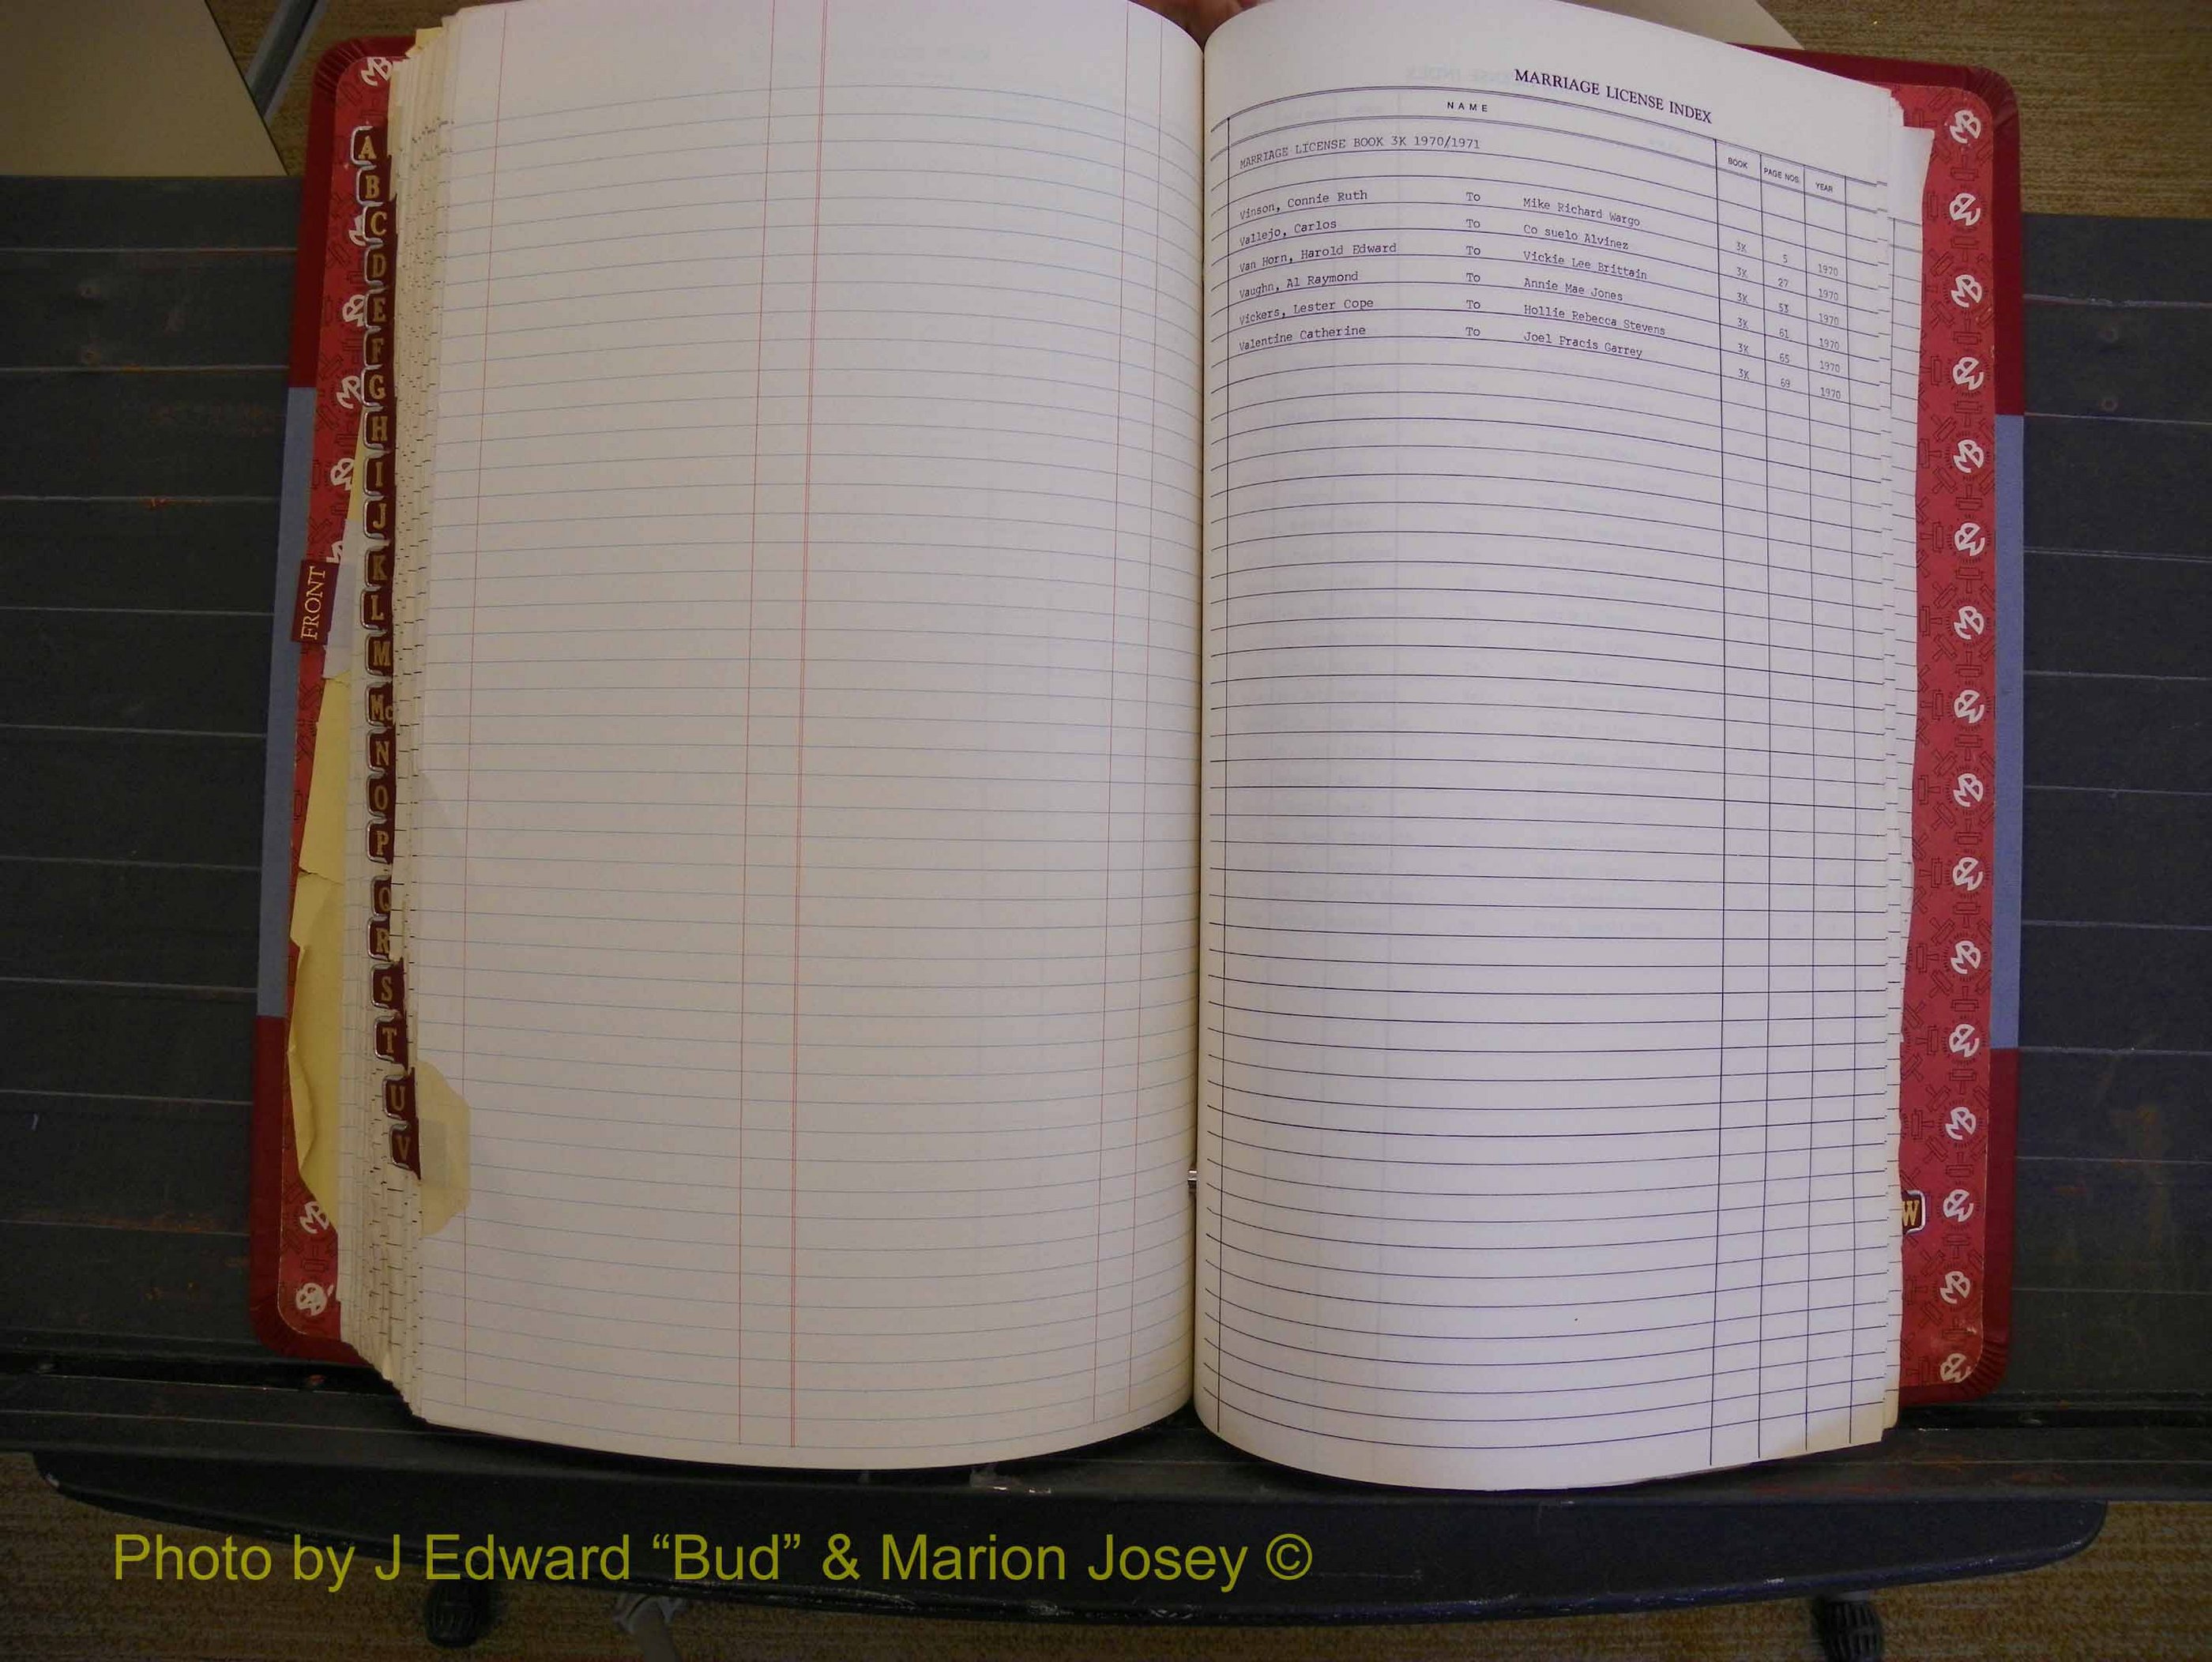 A
B
C
D
E
F
G
H
I
J
K
L
M
Mc
N
O
P
Q
R
S
T
U
V
FRONT
MARRIAGE LICENSE INDEX
NAME BOOK PAGE NOS. YEAR
MARRIAGE LICENSE BOOK 3K 1970/1971
Vinson, Connie Ruth To Mike Richard Wargo 3K 5 1970
Vallejo, Carlos To Co suelo Alvinez 3K 27 1970
Van Horn, Harold Edward To Vickie Lee Brittain 3K 53 1970
Vaughn, Al Raymond To Annie Mae Jones 3K 61 1970
Vickers, Lester Cope To Hollie Rebecca Stevens 3K 65 1970
Valentine Catherine To Joel Fracis Garrey 3K 69 1970
W
Photo by J Edward “Bud” & Marion Josey ©